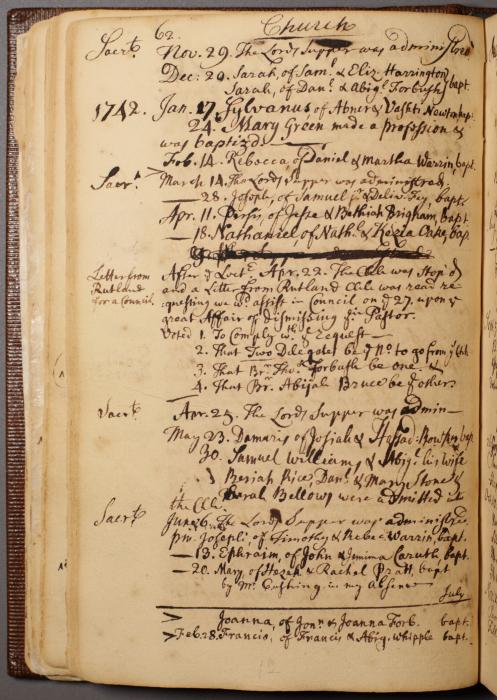 62. Church
Sacrt. Nov. 29. The Lords Supper was administred
Dec: 20. Sarah, of Saml. & Eliz. Harrington
Sarah, of Danl. & Abigl. Forbush bapt.
1742. Jan. 17. Sylvanus of Abner & Vashti Newton bap:
24. Mary Green made a profession &
was baptizd.
Feb. 14. Rebecca, of Daniel & Martha Warrin bapt.
Sacrt. March 14. The Lords Supper was administred.
— 28. Joseph, of Samuel & Deliv. Fay, bapt.
Apr. 11. Persis of Jesse & Bethiah Brigham, bapt
— 18. Nathaniel of Nathl. & Kezia Oake, bap
Letter from After ye Lectr. Apr. 22. The Chh was Stop'd
Rutland and a Letter from Rutland Chh was read re
for a Council. questing we wd. assist in Council on ye 27. upon ye
great Affair of dismissing yir Pastor.
Voted 1. To Comply wth. ye Request —
2. That Two Delegates be ye No. to go from ys Chh
3. That Br. Thos. Forbush be one. &
4. That Br. Abijah Bruce be ye other.
Sacrt. Apr. 25. The Lords Supper was admin—
May 23. Damaris of Josiah & Bowker bap.
30. Samuel Williams & Abigl. his wife
Beriah Rice, Danl. & Mary Stone &
Sarah Bellows were admitted into
the Chh.
Sacrt. June 6. The Lords Supper was administred.
p.m. Joseph, of Timothy & Rebec. Warrin, bapt.
— 13. Ephraim, of John & Jemima Caruth, bapt.
— 20. Mary, of Hezek. & Rachel Pratt, bapt
by Mr. Cushing in my Absence
July
> Joanna, of Jonn. & Joanna Forb. bapt.
> Feb. 28. Francis, of Francis & Abig. Whipple bapt.